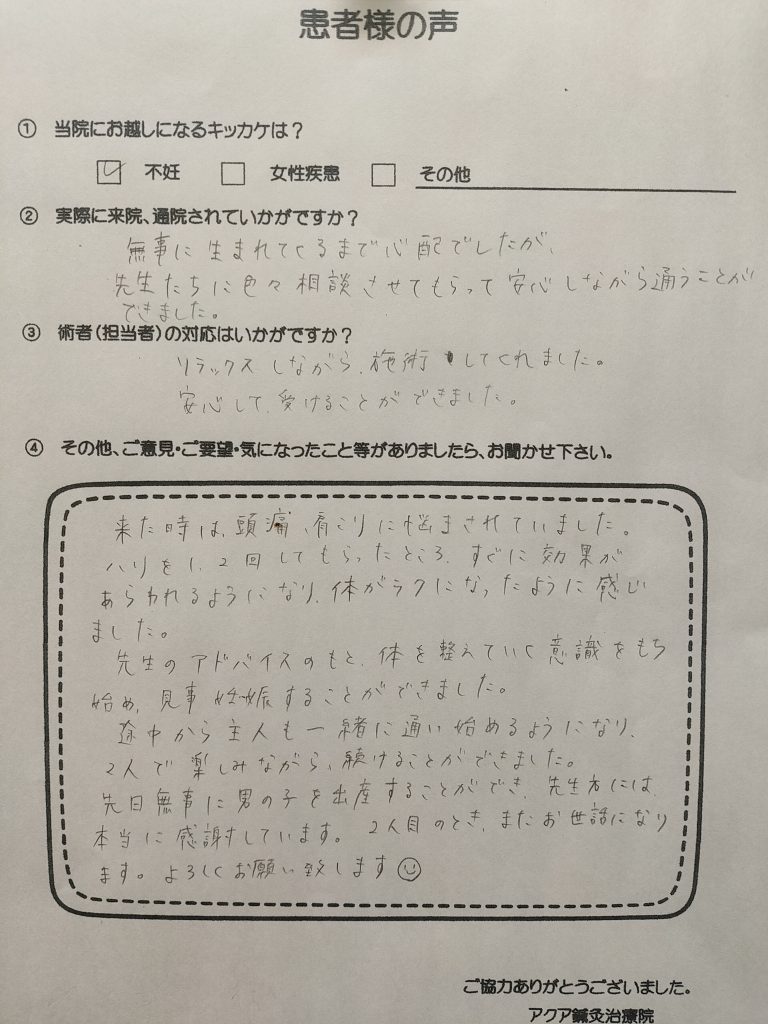 患者様の声
① 当院にお越しになるキッカケは？
不妊 女性疾患 その他
② 実際に来院、通院されていかがですか？
無事に生まれてくるまで心配でしたが、
先生たちに色々相談させてもらって安心しながら通うことが
できました。
③ 術者（担当者）の対応はいかがですか？
リラックスしながら、施術してくれました。
安心して、受けることができました。
④ その他、ご意見・ご要望・気になったこと等がありましたら、お聞かせ下さい。
来た時は、頭痛、肩こりに悩まされていました。
ハリを1、2回してもらったところ、すぐに効果が
あらわれるようになり、体がラクになったように感じ
ました。
先生のアドバイスのもと、体を整えていく意識をもち
始め、見事妊娠することができました。
途中から主人も一緒に通い始めるようになり、
2人で楽しみながら、続けることができました。
先日無事に男の子を出産することができ、先生方には、
本当に感謝しています。 2人目のとき、またお世話になり
ます。よろしくお願い致します☺
ご協力ありがとうございました。
アクア鍼灸治療院